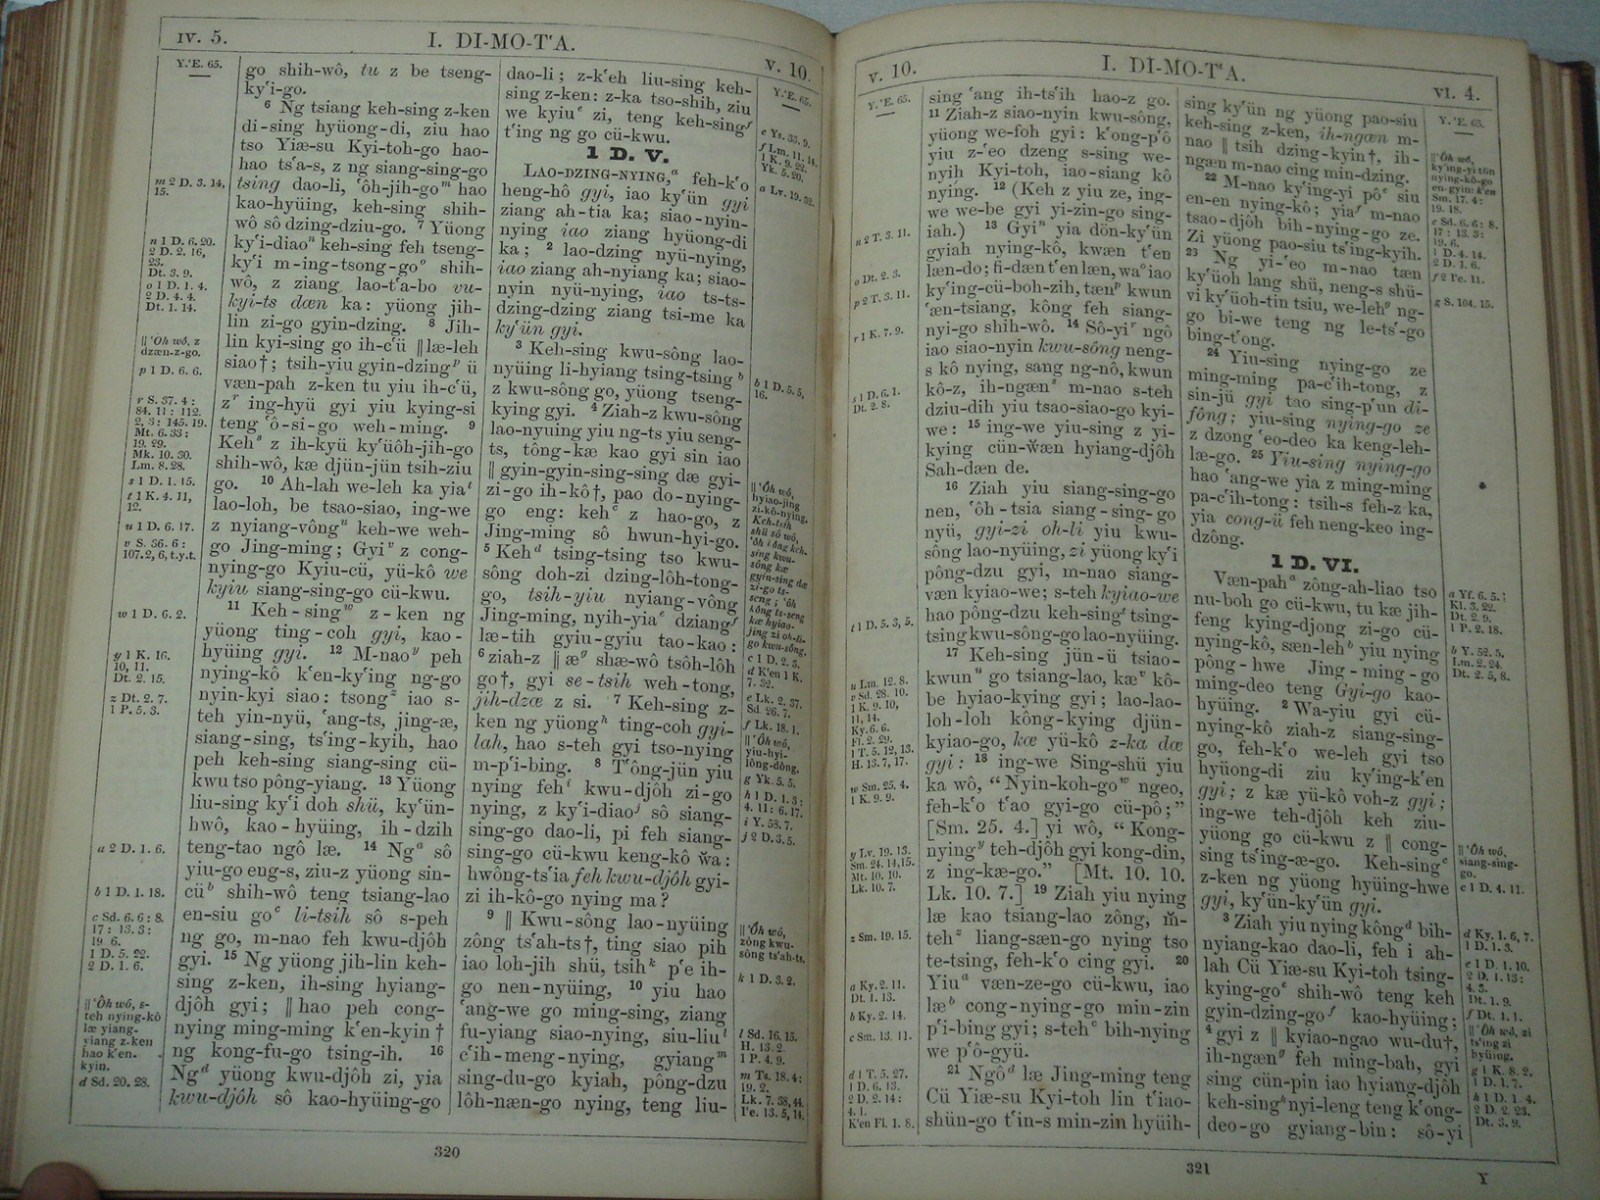 IV. 5.
I. DI-MO-T'A.
V. 10.
Y.'E. 65.
m 2 D. 3. 14,
15.
n 1 D. 6. 20.
2 D. 2. 16,
23.
Dt. 3. 9.
o 1 D. 1. 4.
2 D. 4. 4.
Dt. 1. 14.
|| 'Ôh wô, z
dzæn-z-go.
p 1 D. 6. 6.
r S. 37. 4:
84. 11: 112.
2, 3: 145. 19.
Mt. 6. 33:
19. 29.
Mk. 10. 30.
Lm. 8. 28.
s 1 D. 1. 15.
t 1 K. 4. 11,
12.
u 1 D. 6. 17.
v S. 36. 6:
107. 2, 6, t.y.t.
w 1 D. 6. 2.
y 1 K. 16.
10, 11.
Dt. 2. 15.
z Dt. 2. 7.
1 P. 5. 3.
a 2 D. 1. 6.
b 1 D. 1. 18.
c Sd. 6. 6: 8.
17: 13. 3:
19. 6.
1 D. 5. 22.
2 D. 1. 6.
|| 'Ôh wô, s-
teh nying-kô
læ yiang-
yiang z-ken
hao k'en-
kyin.
d Sd. 20. 28.
go shih-wô, tu z be tseng-
ky'i-go.
6 Ng tsiang keh-sing z-ken
di-sing hyüong-di, ziu hao
tso Yiæ-su Kyi-toh-go hao-
hao ts'a-s, z ng siang-sing-go
tsing dao-li, 'ôh-jih-go m hao
kao-hyüing, keh-sing shih-
wô sô dzing-dziu-go. 7 Yüong
ky'i-diao n keh-sing feh tseng-
ky'i m-ing-tsong-go o shih-
wô, z ziang lao-t'a-bo vu-
kyi-ts dæn ka: yüong jih-
lin zi-go gyin-dzing. 8 Jih-
lin kyi-sing go ih-c'ü || læ-leh
siao†; tsih-yiu gyin-dzing p ü
væn-pah z-ken tu yiu ih-c'ü,
z r ing-hyü gyi yiu kying-si
teng 'ô-si-go weh-ming. 9
Keh s z ih-kyü ky'üôh-jih-go
shih-wô, kæ djün-jün tsih-ziu
go. 10 Ah-lah we-leh ka yia t
lao-loh, be tsao-siao, ing-we
z nyiang-vông u keh-we weh-
go Jing-ming; Gyi v z cong-
nying-go Kyiu-cü, yü-kô we
kyiu siang-sing-go cü-kwu.
11 Keh-sing w z-ken ng
yüong ting-coh gyi, kao-
hyüing gyi. 12 M-nao y peh
nying-kô k'en-ky'ing ng-go
nyin-kyi siao: tsong z iao s-
teh yin-nyü, 'ang-ts, jing-æ,
siang-sing, ts'ing-kyih, hao
peh keh-sing siang-sing cü-
kwu tso pông-yiang. 13 Yüong
liu-sing ky'i doh shü, ky'ün-
hwô, kao-hyüing, ih-dzih
teng-tao ngô læ. 14 Ng a sô
yiu-go eng-s, ziu-z yüong sin-
cü b shih-wô teng tsiang-lao
en-siu go c li-tsih sô s-peh
ng go, m-nao feh kwu-djôh
gyi. 15 Ng yüong jih-lin keh-
sing z-ken, ih-sing hyiang-
djôh gyi; || hao peh cong-
nying ming-ming k'en-kyin†
ng kong-fu-go tsing-ih. 16
Ng d yüong kwu-djôh zi, yia
kwu-djôh sô kao-hyüing-go
dao-li; z-k'eh liu-sing keh-
sing z-ken: z-ka tso-shih, ziu
we kyiu e zi, teng keh-sing f
t'ing ng go cü-kwu.
1 D. V.
LAO-DZING-NYING, a feh-k'o
heng-hô gyi, iao ky'ün gyi
ziang ah-tia ka; siao-nyin-
nying iao ziang hyüong-di
ka; 2 lao-dzing nyü-nying,
iao ziang ah-nyiang ka; siao-
nyin nyü-nying, iao ts-ts-
dzing-dzing ziang tsi-me ka
ky'ün gyi.
3 Keh-sing kwu-sông lao-
nyüing li-hyiang tsing-tsing b
z kwu-sông go, yüong tseng-
kying gyi. 4 Ziah-z kwu-sông
lao-nyuing yiu ng-ts yiu seng-
ts, tông-kæ kao gyi sin iao
|| gyin-gyin-sing-sing dæ gyi-
zi-go ih-kô†, pao do-nying-
go eng: keh c z hao-go, z
Jing-ming sô hwun-hyi-go.
5 Keh d tsing-tsing tso kwu-
sông doh-zi dzing-lôh-tong-
go, tsih-yiu nyiang-vông
Jing-ming, nyih-yia e dziang f
læ-tih gyiu-gyiu tao-kao:
6 ziah-z || æ g shæ-wô tsôh-lôh
go†, gyi se-tsih weh-tong,
jih-dzæ z si. 7 Keh-sing z-
ken ng yüong h ting-coh gyi-
lah, hao s-teh gyi tso-nying
m-p'i-bing. 8 T'ông-jün yiu
nying feh i kwu-djôh zi-go
nying, z ky'i-diao j sô siang-
sing-go dao-li, pi feh siang-
sing-go cü-kwu keng-kô w̌a:
hwông-ts'ia feh kwu-djôh gyi-
zi ih-kô-go nying ma?
9 || Kwu-sông lao-nyüing
zông ts'ah-ts†, ting siao pih
iao loh-jih shü, tsih k p'e ih-
go nen-nyüing, 10 yiu hao
'ang-we go ming-sing, ziang
fu-yiang siao-nying, siu-liu l
c'ih-meng-nying, gyiang m
sing-du-go kyiah, pông-dzu
lôh-næn-go nying, teng liu-
Y.'E. 65.
e Ys. 33. 9.
f Lm. 11. 14.
1 K. 9. 22.
Yk. 5. 20.
a Lv. 19. 32.
b 1 D. 5. 5,
16.
|| 'Ôh wô,
hyiao-jing
zi-kô-nying.
Keh-tsih
shü sô wô,
c 1 D. 2. 3.
d K'en 1 K.
7. 32.
e Lk. 2. 37.
Sd. 26. 7.
f Lk. 18. 1.
|| 'Ôh wô,
yiu-hyi-
lông-dông.
g Yk. 5. 5.
h 1 D. 1. 3:
4. 11: 6. 17.
i Y. 58. 7.
j 2 D. 3. 5.
|| 'Ôh wô,
zông kwu-
sông ts'ah-ts.
k 1 D. 3. 2.
l Sd. 16. 15.
H. 13. 2.
1 P. 4. 9.
m Ts. 18. 4:
19. 2.
Lk. 7. 38, 44.
1'e. 13. 5, 14.
320
V. 10.
I. DI-MO-T'A.
VI. 4.
Y.'E. 65.
n 2 T. 3. 11.
o Dt. 2. 3.
p 2 T. 3. 11.
r 1 K. 7. 9.
s 1 D. 6. 1.
Dt. 2. 8.
t 1 D. 5. 3, 5.
u Lm. 12. 8.
v Sd. 28. 10.
1 K. 9. 10,
11, 14.
Ky. 6. 6.
Fl. 2. 29.
1 T. 5. 12, 13.
H. 13. 7, 17.
w Sm. 25. 4.
1 K. 9. 9.
y Lv. 19. 13.
Sm. 24. 14, 15.
Mt. 10. 10.
Lk. 10. 7.
z Sm. 19. 15.
a Ky. 2. 11.
Dt. 1. 13.
b Ky. 2. 14.
c Sm. 13. 11.
d 1 T. 5. 27.
1 D. 6. 13.
2 D. 2. 14:
4. 1.
K'en Fl. 1. 8.
sing 'ang ih-ts'ih hao-z go.
11 Ziah-z siao-nyin kwu-sông,
yüong we-foh gyi: k'ong-p'ô
yiu z-'eo dzeng s-sing we-
nyih Kyi-toh, iao-siang kô
nying. 12 (Keh z yiu ze, ing-
we we-be gyi yi-zin-go sing-
iah.) 13 Gyi n yia dön-ky'ün
gyiah nying-kô, kwæn t'en
læn-do; fi-dæn t'en læn, wa o iao
ky'ing-cü-boh-zih, tæn p kwun
'æn-tsiang, kông feh siang-
nyi-go shih-wô. 14 Sô-yi r ngô
iao siao-nyin kwu-sông neng-
s kô nying, sang ng-nô, kwun
kô-z, ih-ngæn s m-nao s-teh
dziu-dih yiu tsao-siao-go kyi-
we: 15 ing-we yiu-sing z yi-
kying cün-w̌æn hyiang-djôh
Sah-dæn de.
16 Ziah yiu siang-sing-go
nen, 'ôh-tsia siang-sing-go
nyü, gyi-zi oh-li yiu kwu-
sông lao-nyüing, zi yüong ky'i
pông-dzu gyi, m-nao siang-
væn kyiao-we; s-teh kyiao-we
hao pông-dzu keh-sing t tsing-
tsing kwu-sông-go lao-nyüing.
17 Keh-sing jün-ü tsiao-
kwun u go tsiang-lao, kæ v kô-
be hyiao-kying gyi; lao-lao-
loh-loh kông-kying djün-
kyiao-go, kæ yü-kô z-ka dæ
gyi: 18 ing-we Sing-shü yiu
ka wô, “Nyin-koh-go w ngeo,
feh-k'o t'ao gyi-go cü-pô;”
[Sm. 25. 4.] yi wô, “Kong-
nying y teh-djôh gyi kong-din,
z ing-kæ-go.” [Mt. 10. 10.
Lk. 10. 7.] 19 Ziah yiu nying
læ kao tsiang-lao zông, m̌-
teh z liang-sæn-go nying tso
te-tsing, feh-k'o cing gyi. 20
Yiu a væn-ze-go cü-kwu, iao
læ b cong-nying-go min-zin
p'i-bing gyi; s-teh c bih-nying
we p'ô-gyü.
21 Ngô d læ Jing-ming teng
Cü Yiæ-su Kyi-toh lin t'iao-
shün-go t'in-s min-zin hyüih-
sing ky'ün ng yüong pao-siu
keh-sing z-ken, ih-ngæn m-
nao || tsih dzing-kyin†, ih-
ngæn m-nao cing min-dzing.
22 M-nao ky'ing-yi pô e siu
en-en nying-kô; yia f m-nao
tsao-djôh bih-nying-go ze.
Zi yüong pao-siu ts'ing-kyih.
23 Ng yi-'eo m-nao tæn
ky'üoh lang shü, neng-s shü-
vi ky'üoh-tin tsiu, we-leh g ng-
go bi-we teng ng le-ts'-go
bing-t'ong.
24 Yiu-sing nying-go ze
ming-ming pa-c'ih-tong, z
sin-jü gyi tao sing-p'un di-
fông; yiu-sing nying-go ze
z dzong 'eo-deo ka keng-leh-
læ-go. 25 Yiu-sing nying-go
hao 'ang-we yia z ming-ming
pa-c'ih-tong: tsih-s feh-z ka,
yia cong-ü feh neng-keo ing-
dzông.
1 D. VI.
Væn-pah a zông-ah-liao tso
nu-boh go cü-kwu, tu kæ jih-
feng kying-djong zi-go cü-
nying-kô, sæn-leh b yiu nying
pông-hwe Jing-ming-go
ming-deo teng Gyi-go kao-
hyüing. 2 Wa-yiu gyi cü-
nying-kô ziah-z siang-sing-
go, feh-k'o we-leh gyi tso
hyüong-di ziu ky'ing-k'en
gyi; z kæ yü-kô voh-z gyi;
ing-we teh-djôh keh ziu-
yüong go cü-kwu z || cong-
sing ts'ing-æ-go. Keh-sing c
z-ken ng yüong hyüing-hwe
gyi, ky'ün-ky'ün gyi.
3 Ziah yiu nying kông d bih-
nyiang-kao dao-li, feh i ah-
lah Cü Yiæ-su Kyi-toh tsing-
kying-go e shih-wô teng keh
gyin-dzing-go f kao-hyüing;
4 gyi z || kyiao-ngao wu-du†,
ih-ngæn g feh ming-bah, gyi
sing cün-pin iao hyiang-djôh
keh-sing h nyi-leng teng k'ong-
deo-go gyiang-bin: sô-yi
Y.'E. 65.
|| 'Ôh wô,
ky'ing-yi tön
nying-kô-go
en-gyin: k'en
Sm. 17. 4:
19. 18.
e Sd. 6. 6: 8.
17: 13. 3:
19. 6.
1 D. 4. 14.
2 D. 1. 6.
f 2 1'e. 11.
g S. 104. 15.
a Yf. 6. 5.:
Kl. 3. 22.
Dt. 2. 9.
1 P. 2. 18.
b Y. 52. 5.
Lm. 2. 24.
Dt. 2. 5, 8.
|| 'Ôh wô,
siang-sing-
go.
c 1 D. 4. 11.
d Ky. 1. 6, 7.
1 D. 1. 3.
e 1 D. 1. 10.
2 D. 1. 13:
4. 3.
Dt. 1. 9.
f Dt. 1. 1.
|| 'Ôh wô, zi
ts'ing zi
hyüing.
g 1 K. 8. 2.
1 D. 1. 7.
h 1 D. 1. 4.
2 D. 2. 23.
Dt. 3. 9.
321
Y